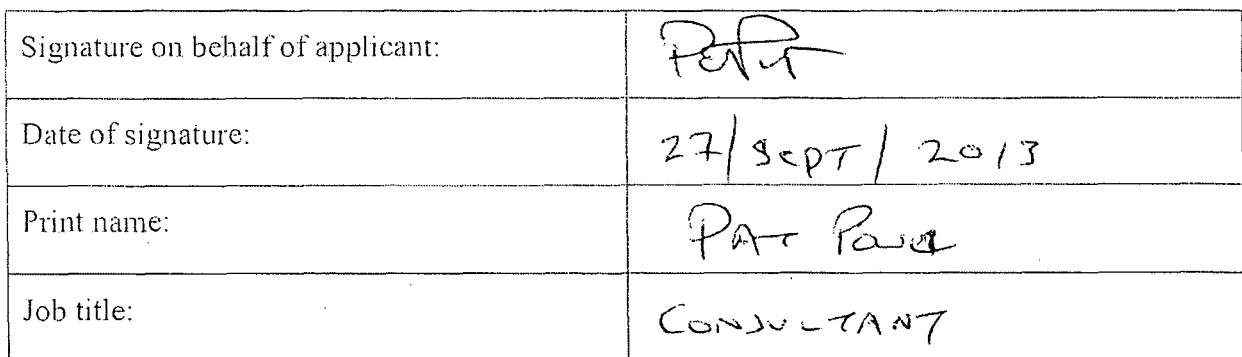 Signature on behalf of applicant:
Date of signature: 27/Sept/2013
Print name: PAT
Job title: CONSULTANT